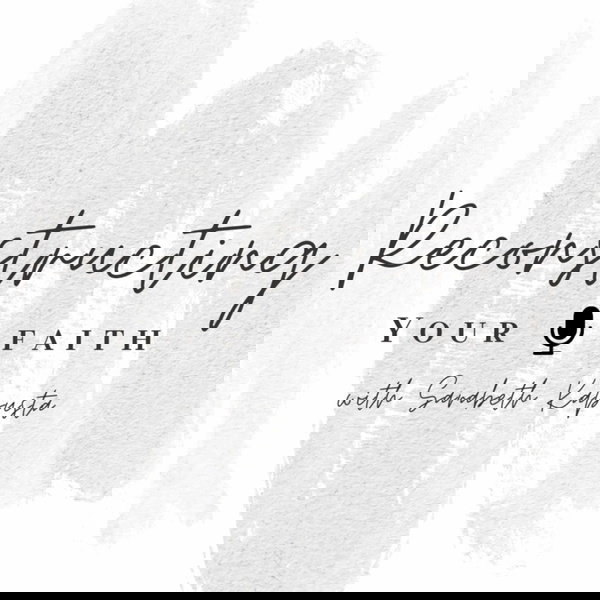 Reconstructing
YOUR FAITH
with Sarabeth Kapusta